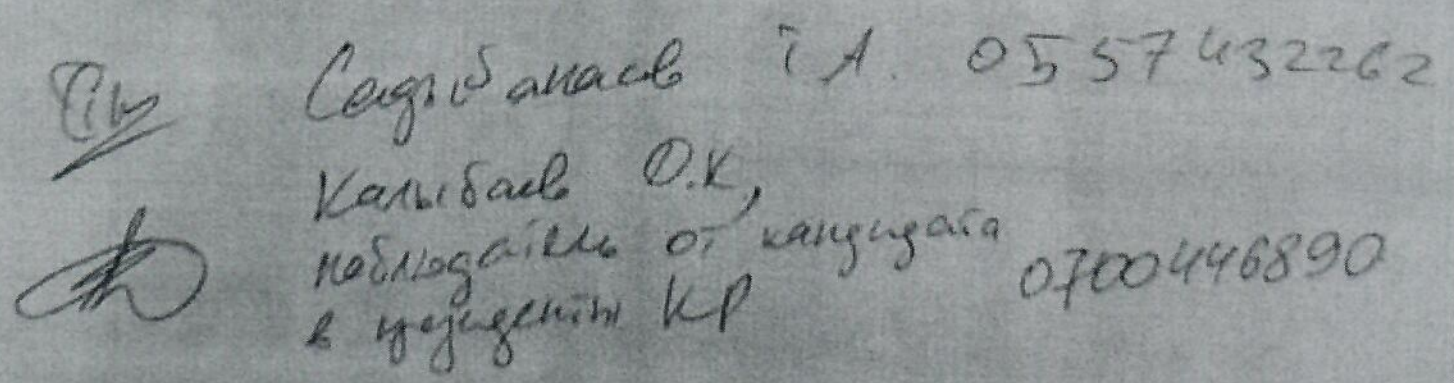 Садыбакасов Т А. 0557432262
Калыбаев О.К,
наблюдатель от кандидата
в президенты КР 0700446890